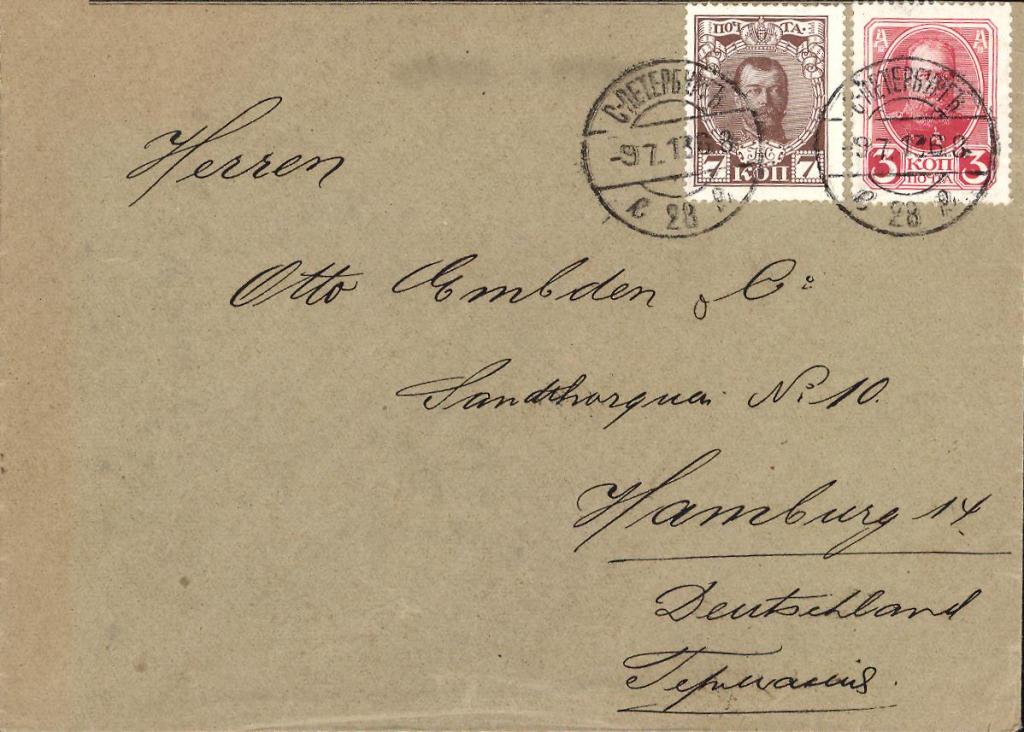 ПОЧТА
7 КОП 7
3 КОП 3
ПОЧТА
С-ПЕТЕРБУРГЪ
-97.13 6.8
е 28 р.
С-ПЕТЕРБУРГЪ
-97.13 6.8
е 28 р.
Herren
Otto Embden & Co
Sandthorquai No 10.
Hamburg 14
Deutschland
Германия.